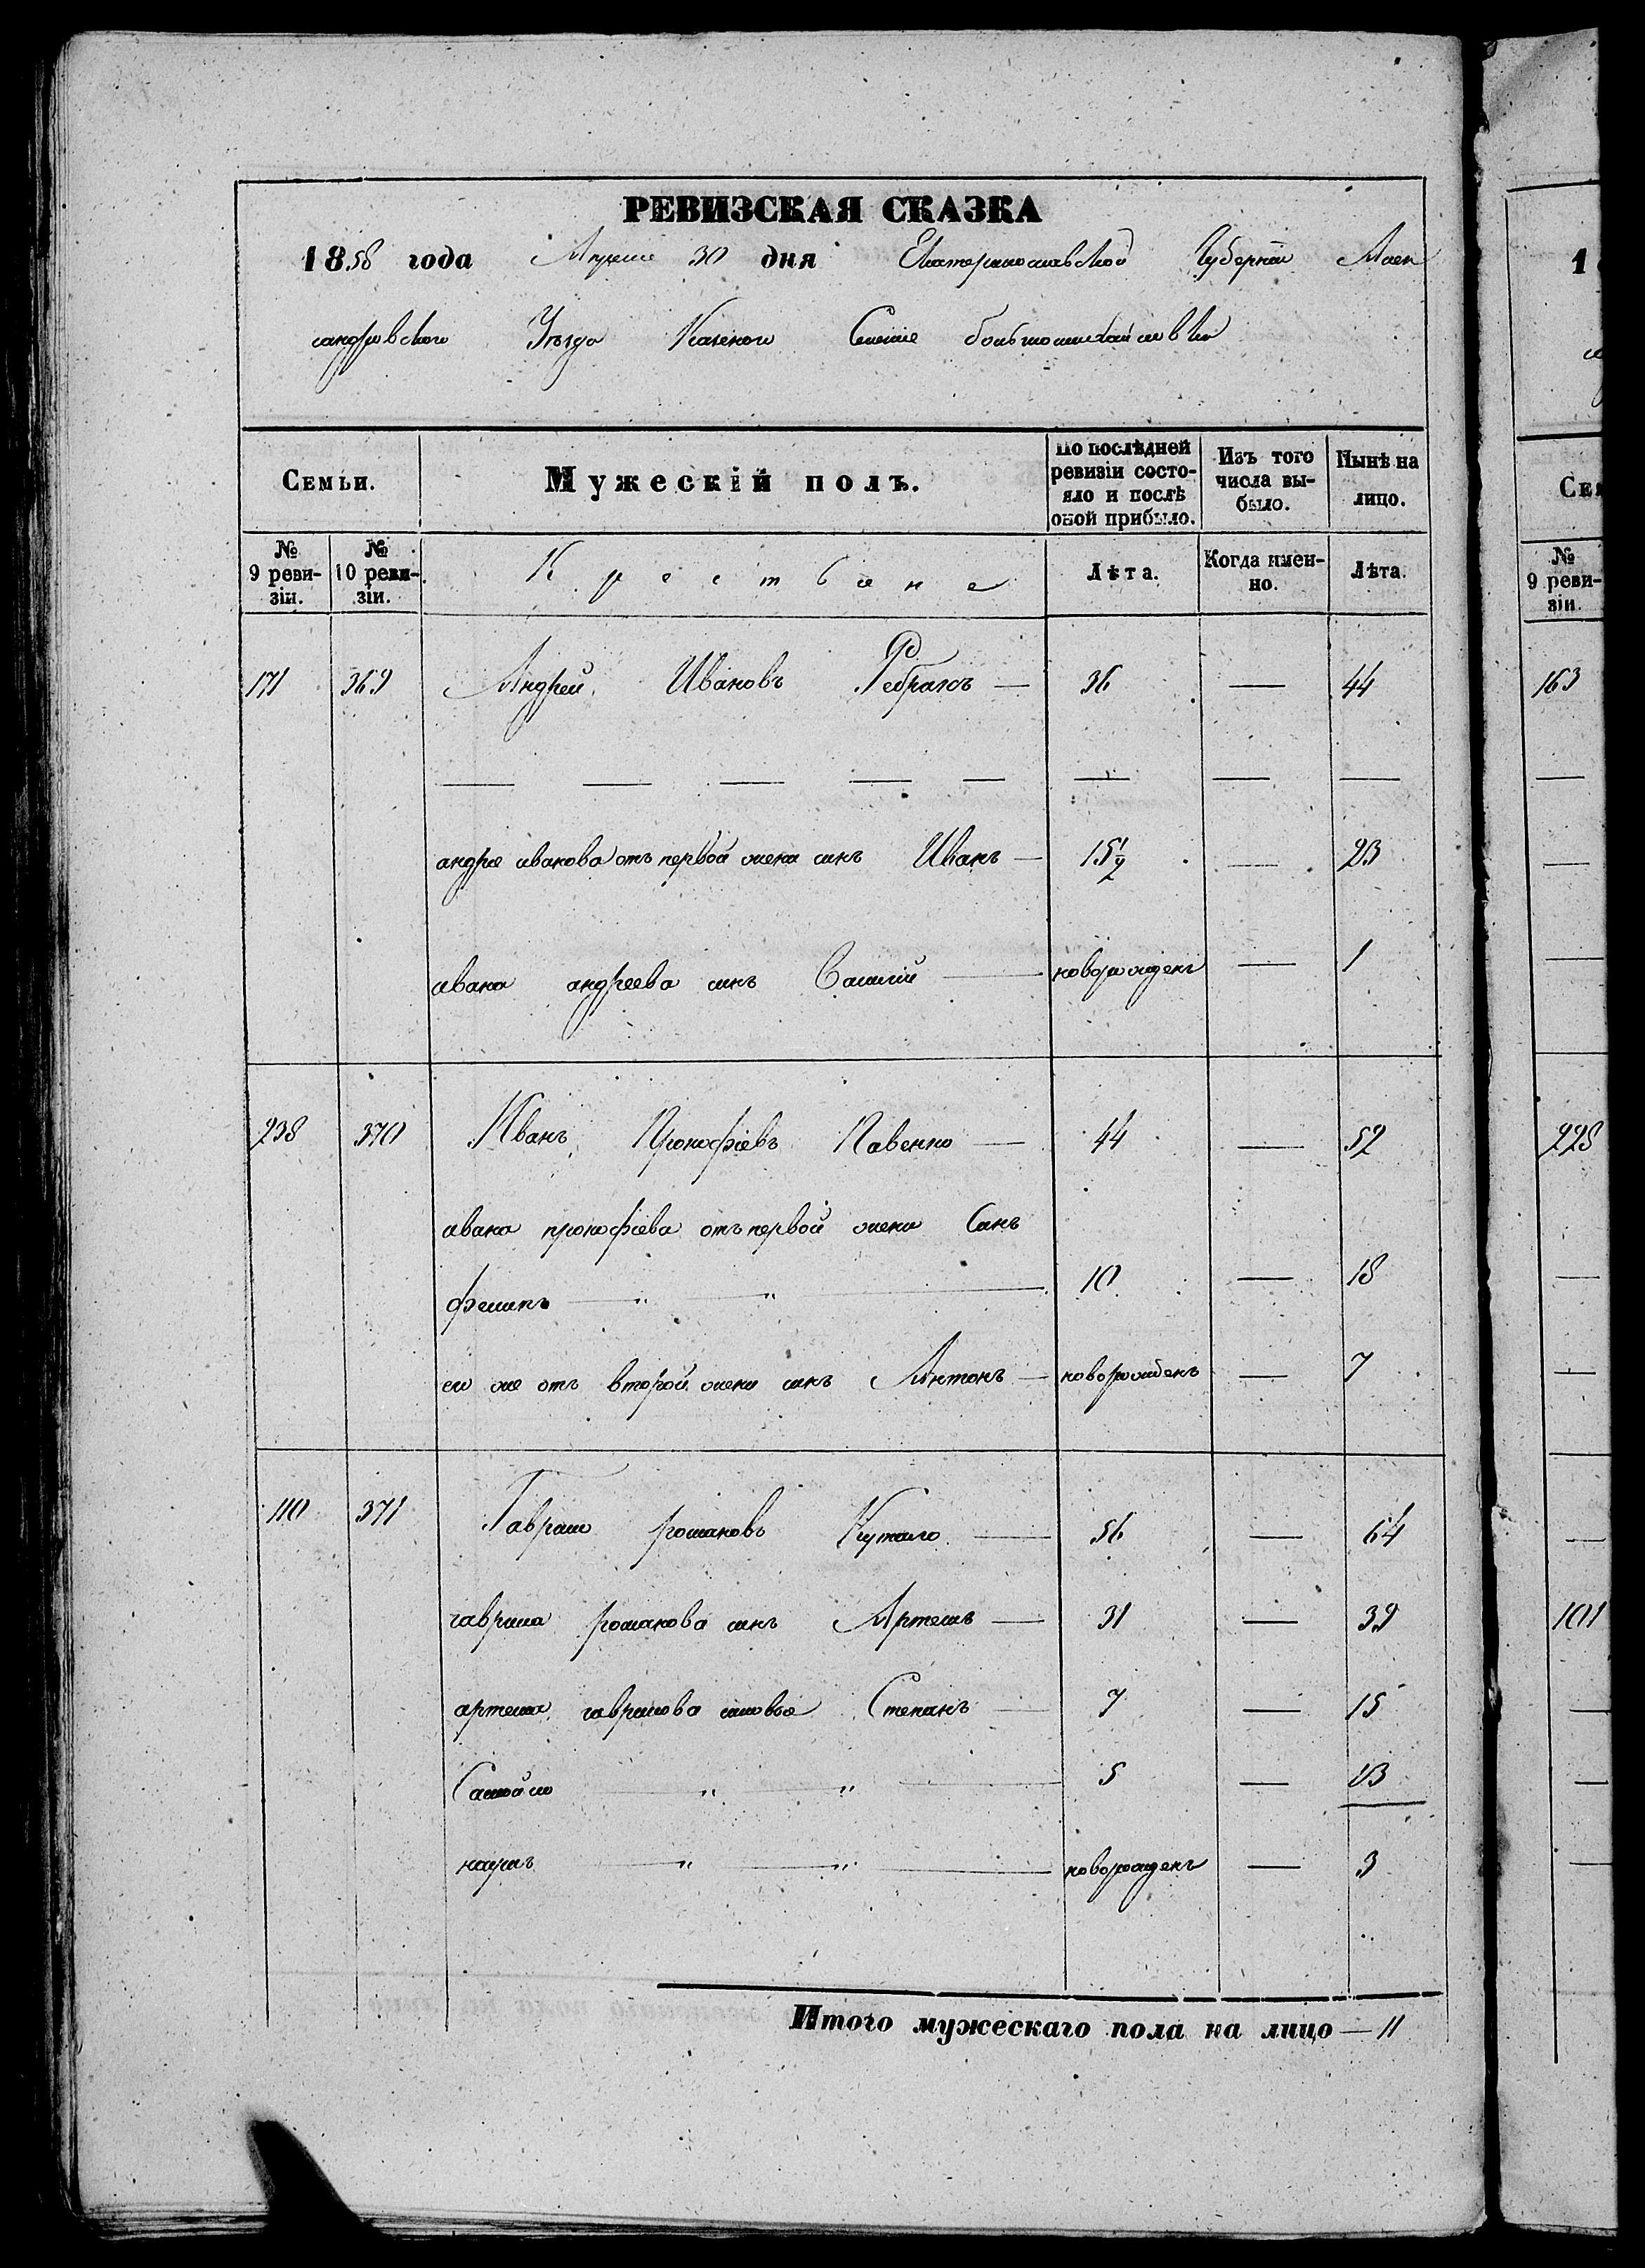 РЕВИЗСКАЯ СКАЗКА
1858 года Апреля 30 дня Екатеринославской Губернии Алек
сандровского Уезда Казеного Селение большомихайловки
Семьи. Мужескій полъ. По послѣдней ревизіи состояло и послѣ оной прибыло. Изъ того числа выбыло. Нынѣ на лицо.
№ 9 ревизіи. № 10 ревизіи. Крестьяне Лѣта. Когда именно. Лѣта.
171 369 Андрей Ивановъ Ребрикъ — 36 — 44
— — — — — — — —
андрея иванова отъ первой жени синъ Иванъ — 15½ — 23
ивана андреева синъ Василий — новорожденъ — 1
238 370 Иванъ Прокофіевъ Павенко — 44 — 52
ивана прокофіева отъ первой жени Синъ
филипъ — " — " — 10 — 18
его же отъ второй жени синъ Антонъ — новорожденъ — 7
110 371 Гаврило романовъ — 56 — 64
гаврила романова синъ Артемъ — 31 — 39
артема гаврилова синовья Степанъ — 7 — 15
Самойло — " — " — 5 — 13
— " — " — новорожденъ — 3
Итого мужескаго пола на лицо — 11
1
Сем
№ 9 ревизіи.
163
228
101